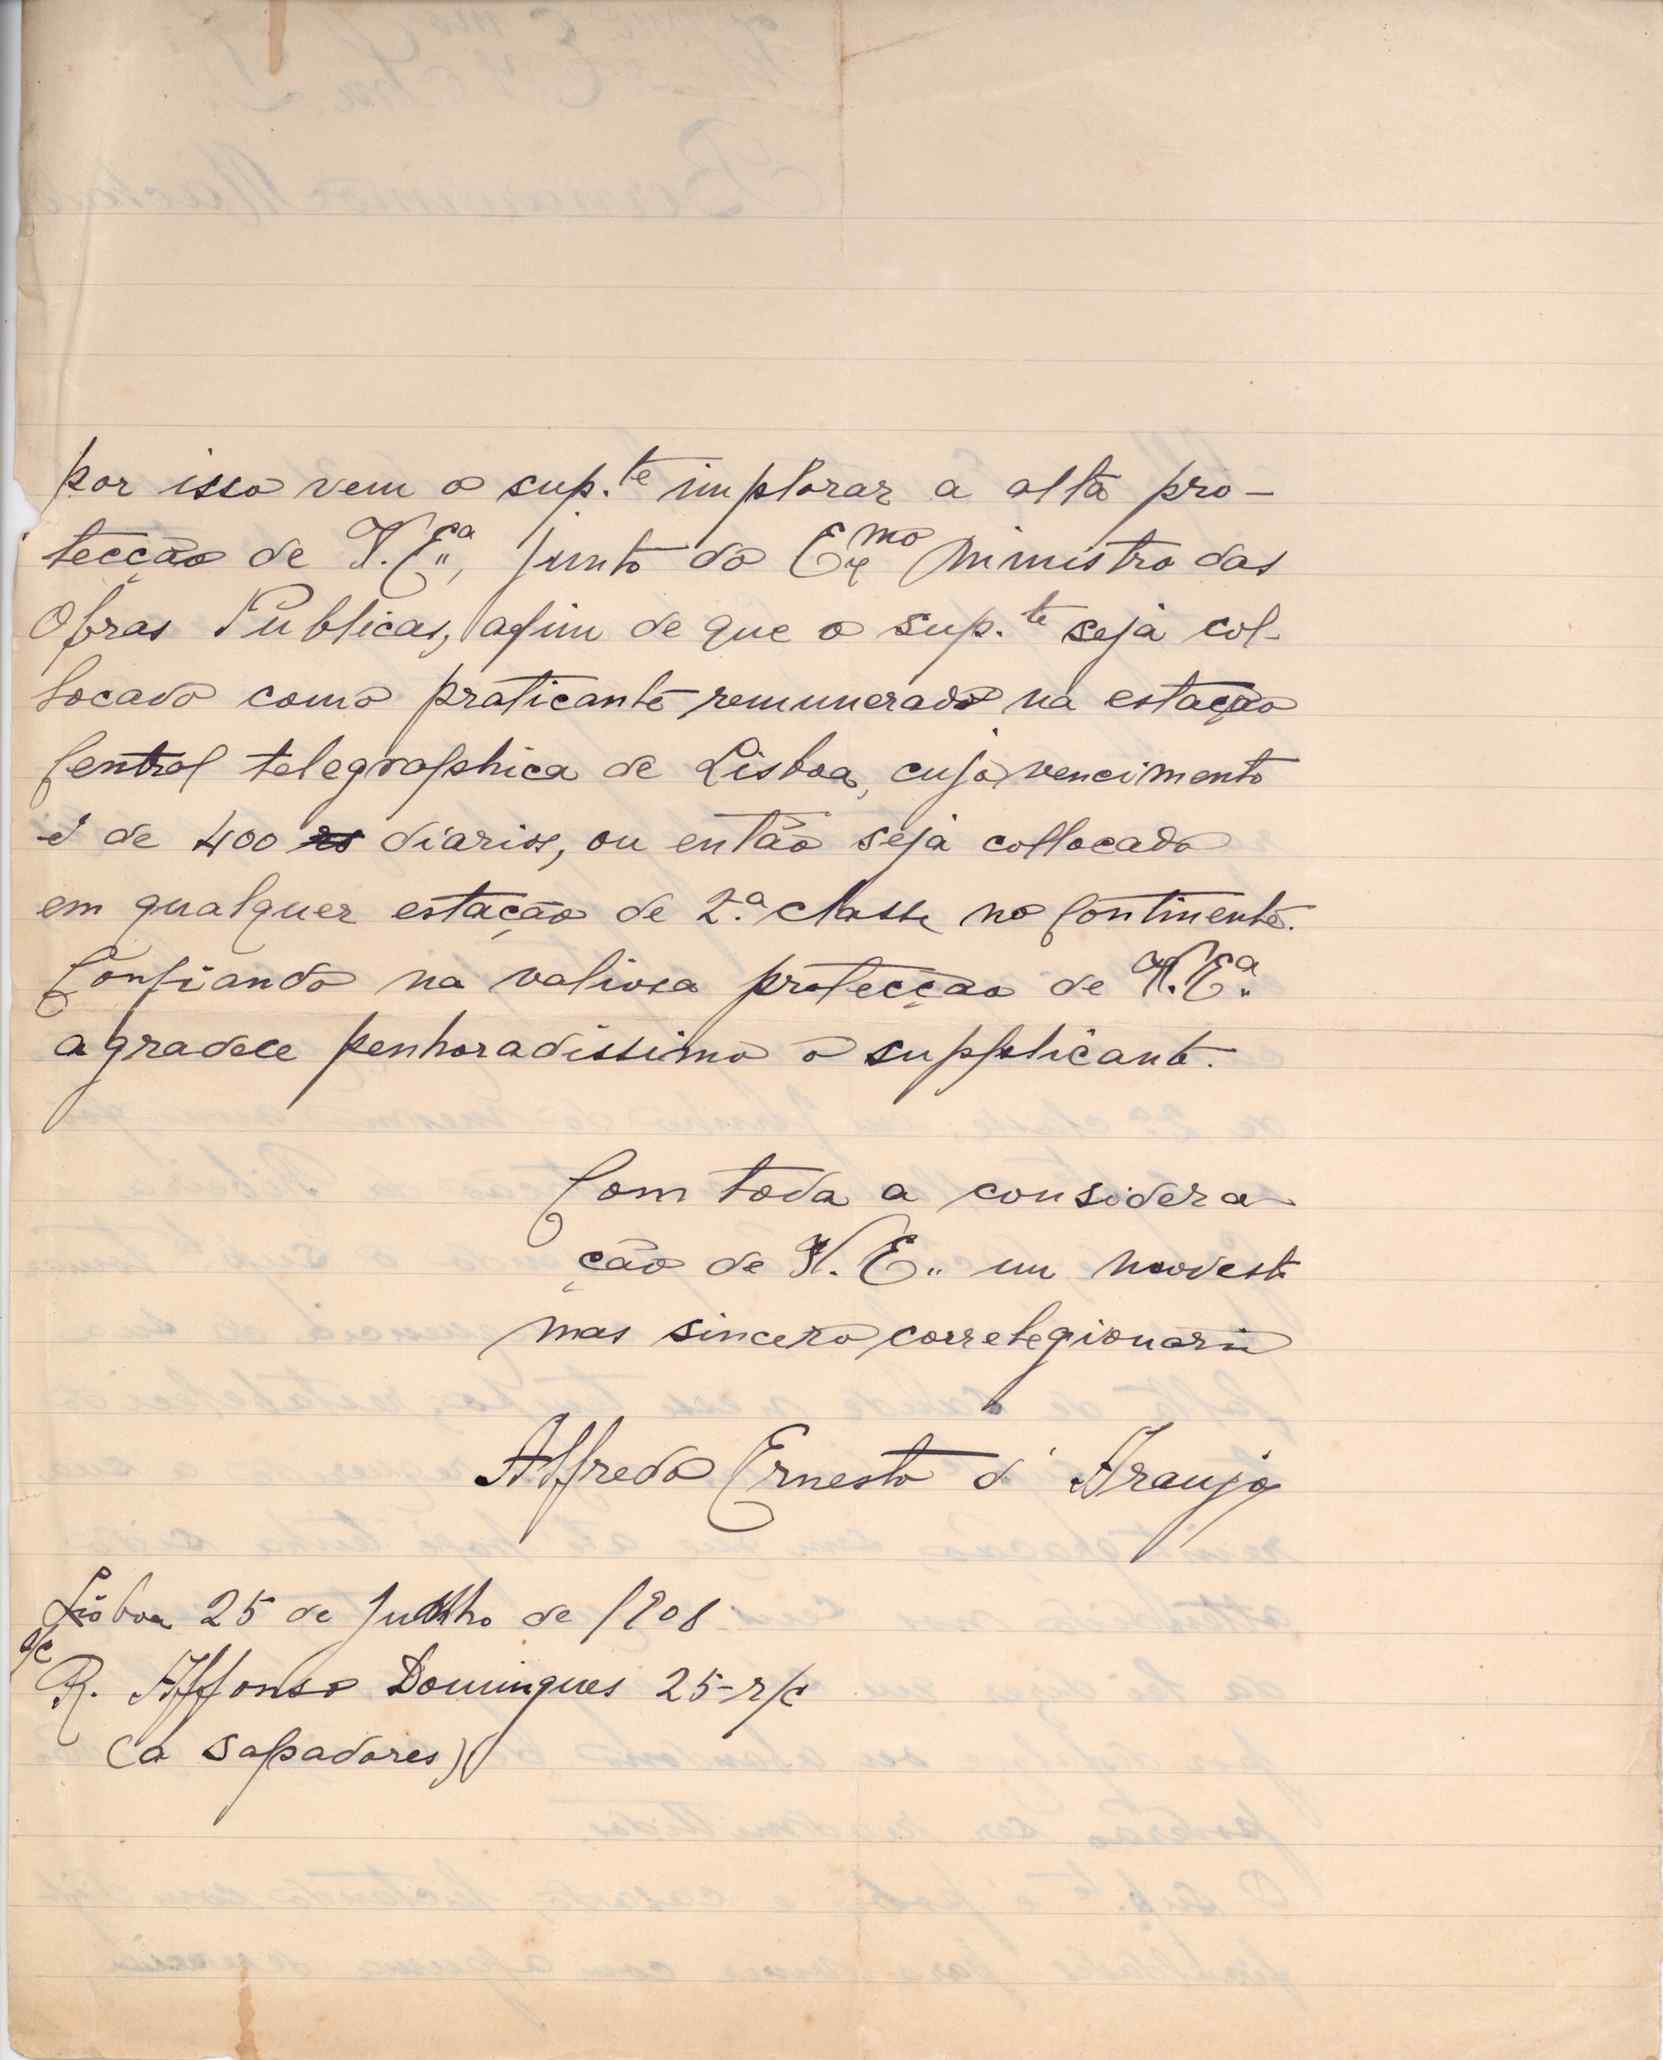 por isso vem o sup.te implorar a alta pro-
tecção de V. E.ª, junto do Exmo Ministro das
Obras Publicas, afim de que o sup.te seja col-
locado como praticante remunerado na estação
Central telegraphica de Lisboa, cujo vencimento
é de 400 rs diarios, ou então seja collocado
em qualquer estação de 2.ª classe no Continente.
Confiando na valiosa protecção de V. E.ª
agradece penhoradissimo o supplicante.
Com toda a considera
ção de V. E.. um modesto
mas sincero correlegionario
Alfredo Ernesto d'Araujo
Lisboa 25 de Julho de 1908
s/c
R. Affonso Domingues 25-r/c
(a Sapadores)